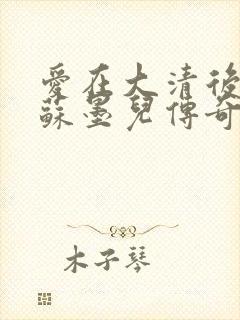 愛在大清後
蘇墨兒傳奇
木子琴